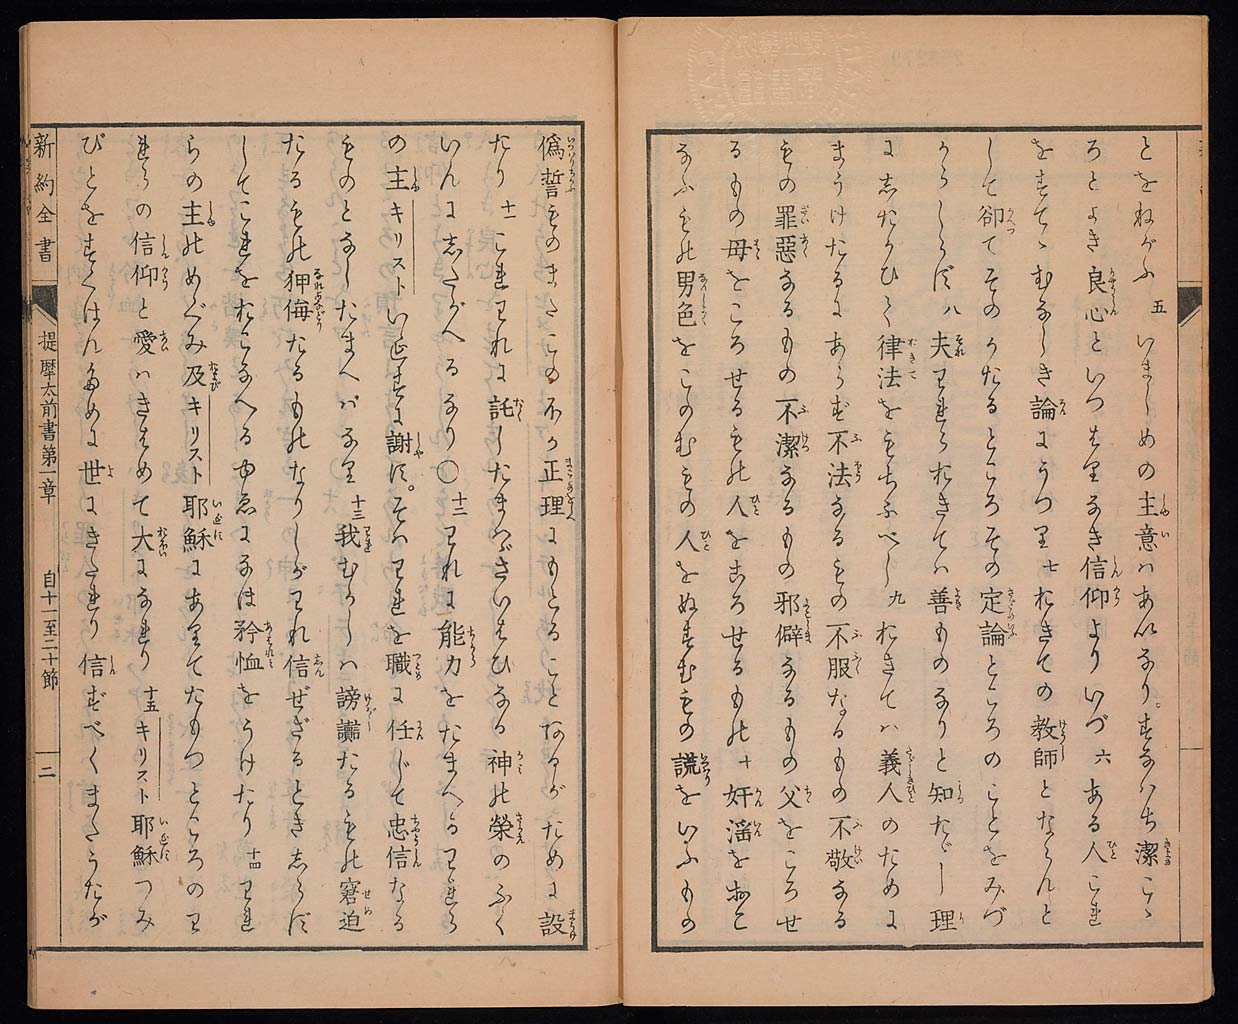 とをねがふ 五 いましめの主意ハあいなり。すなハち潔こゝ
ろとよき良心といつはりなき信仰よりいづ 六 ある人これ
をすてゝむなしき論にうつり 七 おきての教師とならんと
して卻てそのかたるところその定論ところのことをみづ
からしらず 八 夫われらおきてハ善ものなりと知たゞし理
にしたがひて律法をもちふべし 九 おきてハ義人のために
まうけたるにあらず不法なるもの不服なるもの不敬なる
もの罪惡なるもの不潔なるもの邪僻なるもの父をころせ
るもの母をころせるもの人をころせるもの 十 奸滛をおこ
なふもの男色をこのむもの人をぬすむもの謊をいふもの
偽誓ものまたこのほか正理にもとることなるがために設
たり 十一 これわれに託したまへるさいはひなる神の榮のふく
いんにしたがへるなり〇 十二 われに能力をたまへるわれら
の主キリストいゑすに謝す。そハわれを職に任じて忠信なる
ものとなしたまへバなり 十三 我むかしハ謗讟たるもの窘迫
たるもの狎侮たるものなりしがわれ信ぜざるときしらず
してこれをおこなへるゆゑになほ矜恤をうけたり 十四 われ
らの主のめぐみ及キリスト耶穌にありてたもつところのわ
れらの信仰と愛ハきはめて大になれり 十五 キリスト耶穌つみ
びとをすくはんために世にきたれり信ずべくまたうたが
新約全書
提摩太前書第一章
自十一至二十節
二